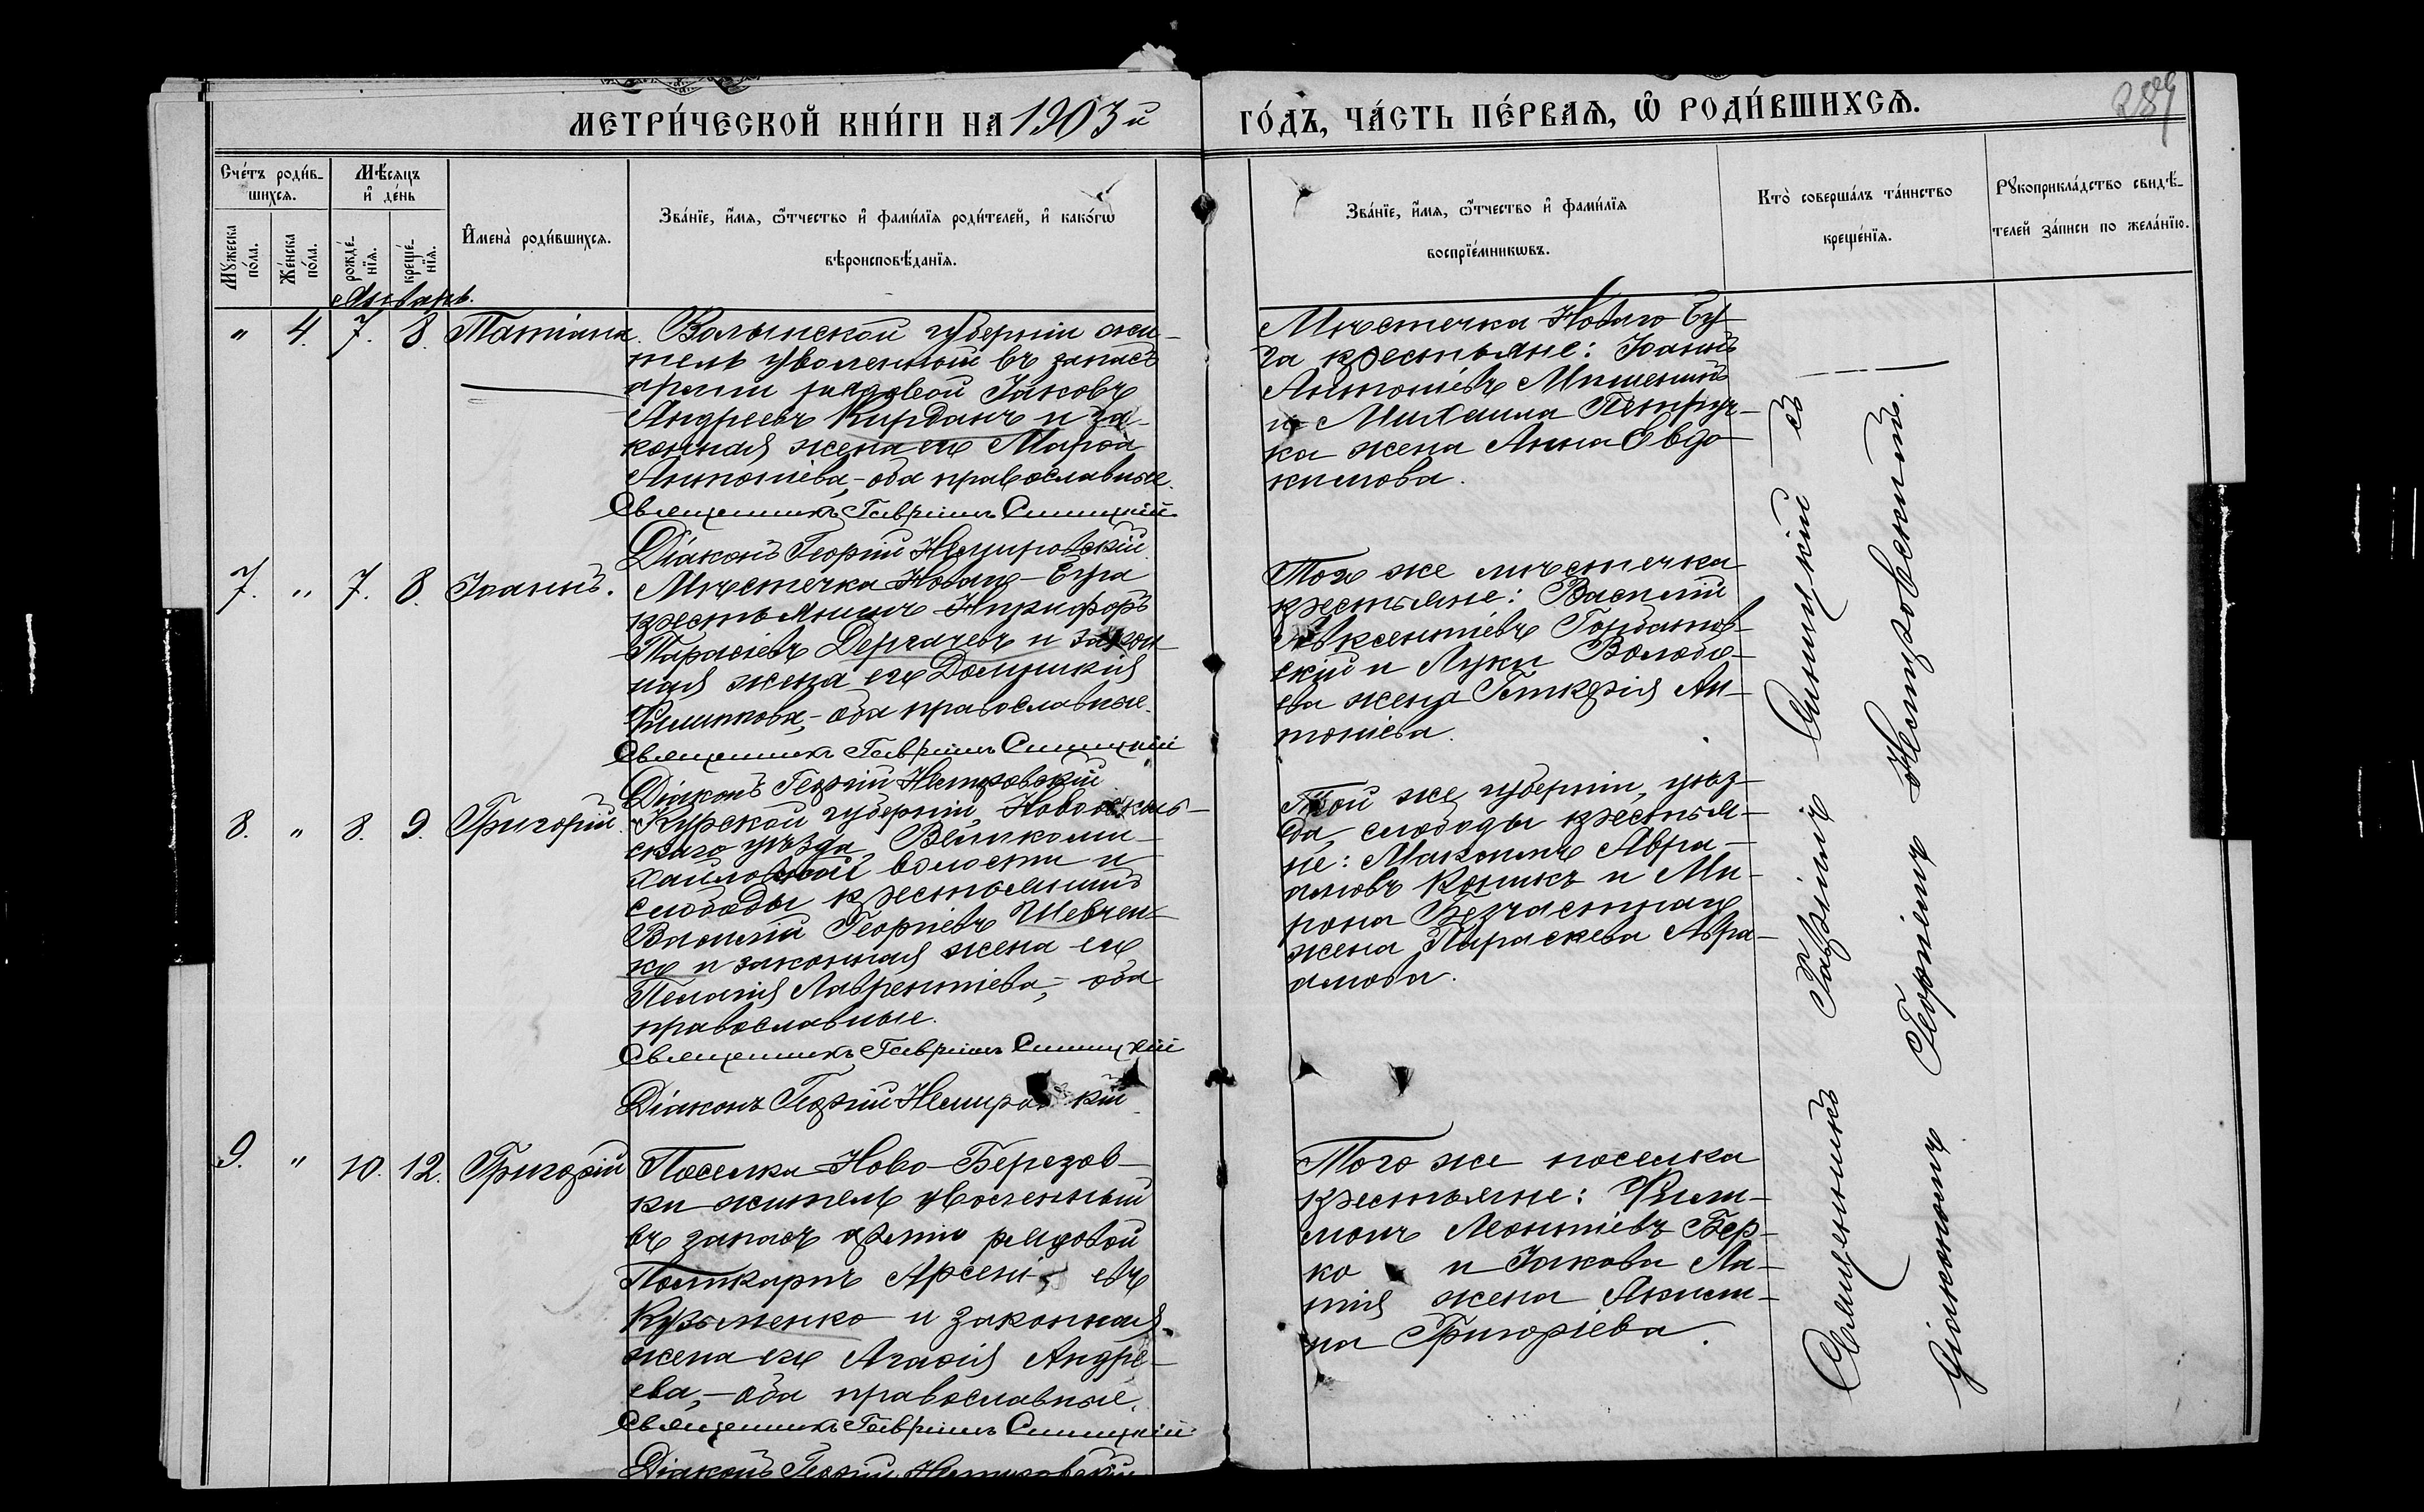 МЕТРИ́ЧЕСКОЙ КНИ́ГИ НА 1903й
ГО́ДЪ, ЧА́СТЬ ПЕ́РВАЯ, Ѡ҆ РОДИ́ВШИХСЯ.
289
Сче́тъ роди́в-
шихся.
Мѣ́сяцъ
и҆ де́нь
И҆мена̀ роди́вшихся.
Зва́нїе, и҆́мя, ѻ҆́тчество и҆ фами́лїя роди́телей, и҆ како́гѡ
вѣроисповѣ́данїя.
Мꙋ́жеска
по́ла.
Же́нска
по́ла.
рожде́-
нїя.
креще́-
нїя.
Зва́нїе, и҆́мя, ѻ҆́тчество и҆ фами́лїя
воспрїе́мникѡвъ.
Кто̀ соверша́лъ та́инство
креще́нїя.
Рꙋкоприкла́дство свидѣ́-
телей за́писи по жела́нїю.
Январь.
" 4. 7. 8. Татіана.
Волынской губерніи жи-
тель уволенный въ запасъ
арміи рядовой Іаковъ
Андреевъ Кирданъ и за-
конная жена его Марѳа
Антоніева,- оба православные.
Священникъ Гавріилъ Синицкій
Діаконъ Георгій Немировскій
Мѣстечка Новаго Бу-
га крестьяне: Іоаннъ
Антоніевъ
и Михаила Петруч-
ка жена Анна Евдо-
кимова.
7. " 7. 8. Іоаннъ.
Мѣстечка Новаго-Буга
крестьянинъ Никифоръ
Тарасіевъ Дергачевъ и закон-
ная жена его Домникія
Филиппова,- оба православные.
Священникъ Гавріилъ Синицкій
Діаконъ Георгій Немировскій
Того же мѣстечка
крестьяне: Василій
Авксентіевъ Горбанов-
скій и Луки Волоба-
ева жена Гликерія Ан-
тоніева.
8. " 8. 9. Григорій.
Курской губерніи, Новооскол-
скаго уѣзда, Великоми-
хайловской волости и
слободы крестьянинъ
Василій Георгіевъ Шевчен-
ко и законная жена его
Пелагія Лаврентіева,- оба
православные.
Священникъ Гавріилъ Синицкій
Діаконъ Георгій Немировскій
Той же губерніи, уѣз-
да, слободы крестья-
не: Максимъ Авра-
амовъ Коникъ и Ми-
рона Безчастнаго
жена Параскева Авра-
амова.
9. " 10. 12. Григорій
Поселка Ново-Березов-
ки житель уволенный
въ запасъ арміи рядовой
Поликарпъ Арсеніевъ
Кузьменко и законная
жена его Агаѳія Андре-
ева,- оба православные.
Священникъ Гавріилъ Синицкій
Діаконъ Георгій Немировскій
Того же поселка
крестьяне: Фили-
монъ Леонтіевъ Бер-
ко и Іакова Ла-
жена Акили-
на Григоріева.
Священникъ Гавріилъ Синицкій съ
діакономъ Георгіемъ Немировскимъ.